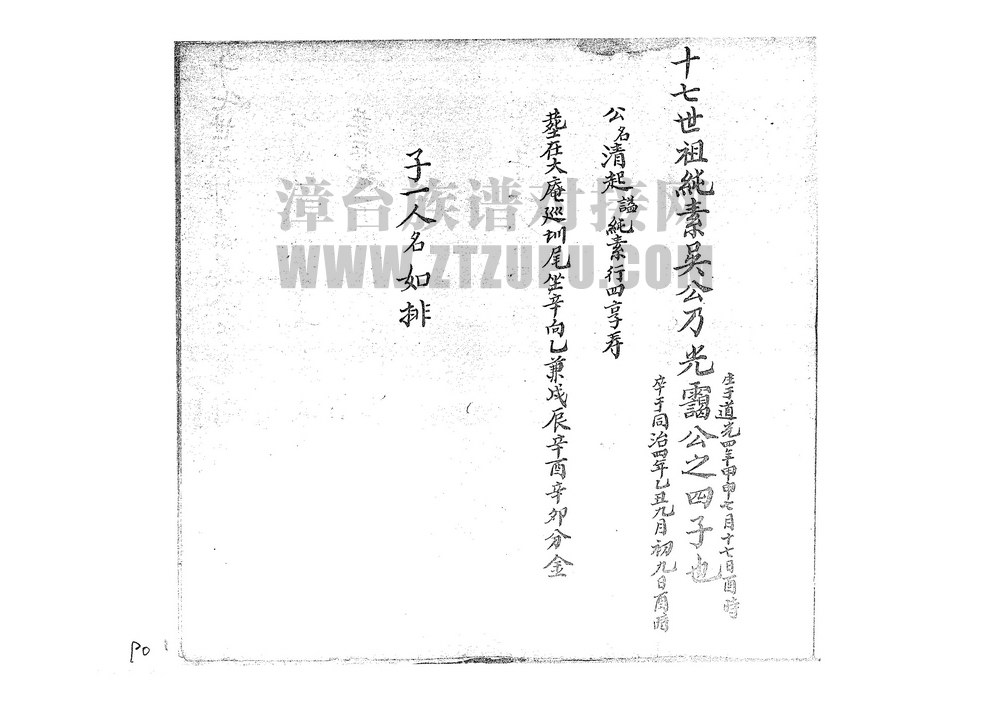 十七世祖純素吳公乃光靄公之四子也
生于道光四年甲申七月十七日酉時
卒于同治四年乙丑九月初九日酉時
公名清起謚純素行四享寿
塟在大庵廵圳尾坐辛向乙兼戌辰辛酉辛卯分金
子一人名如排
漳台族谱对接网
WWW.ZTZUPU.COM